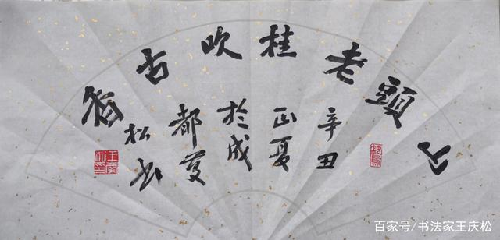 山頭老桂吹古香
辛丑
正夏
於成
都慶
松书
百家号/书法家王庆松